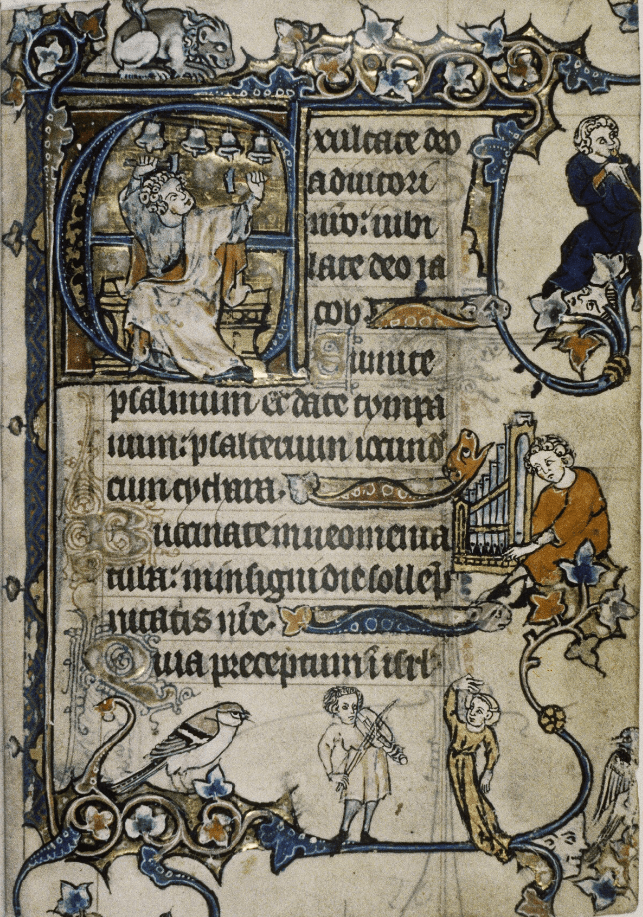 Exultate deo
adiutori
n̄ro: iubi
late deo ia
cob
Sumite
psalmum et date tympa
num: psalterium iocund̄
cum cythara.
Buccinate in neomenia
tuba: in insigni die sollēp
nitatis nr̄e.
Quia preceptum ī isrl̄